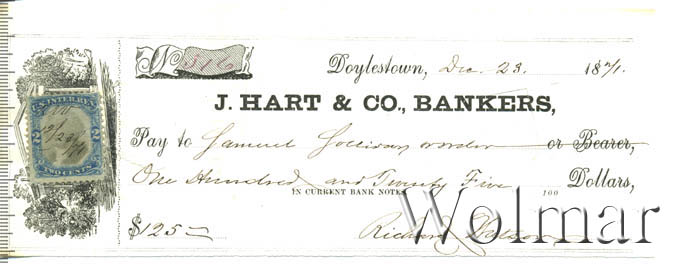 No 516
Doylestown, Dec. 23. 1871.
J. HART & CO., BANKERS,
Pay to Samuel or order or Bearer,
One Hundred and Twenty Five 100 Dollars,
IN CURRENT BANK NOTES
$125
Richard Watson
U.S. INTER. REV.
12/23/71
2 2
TWO CENTS
Wolmar